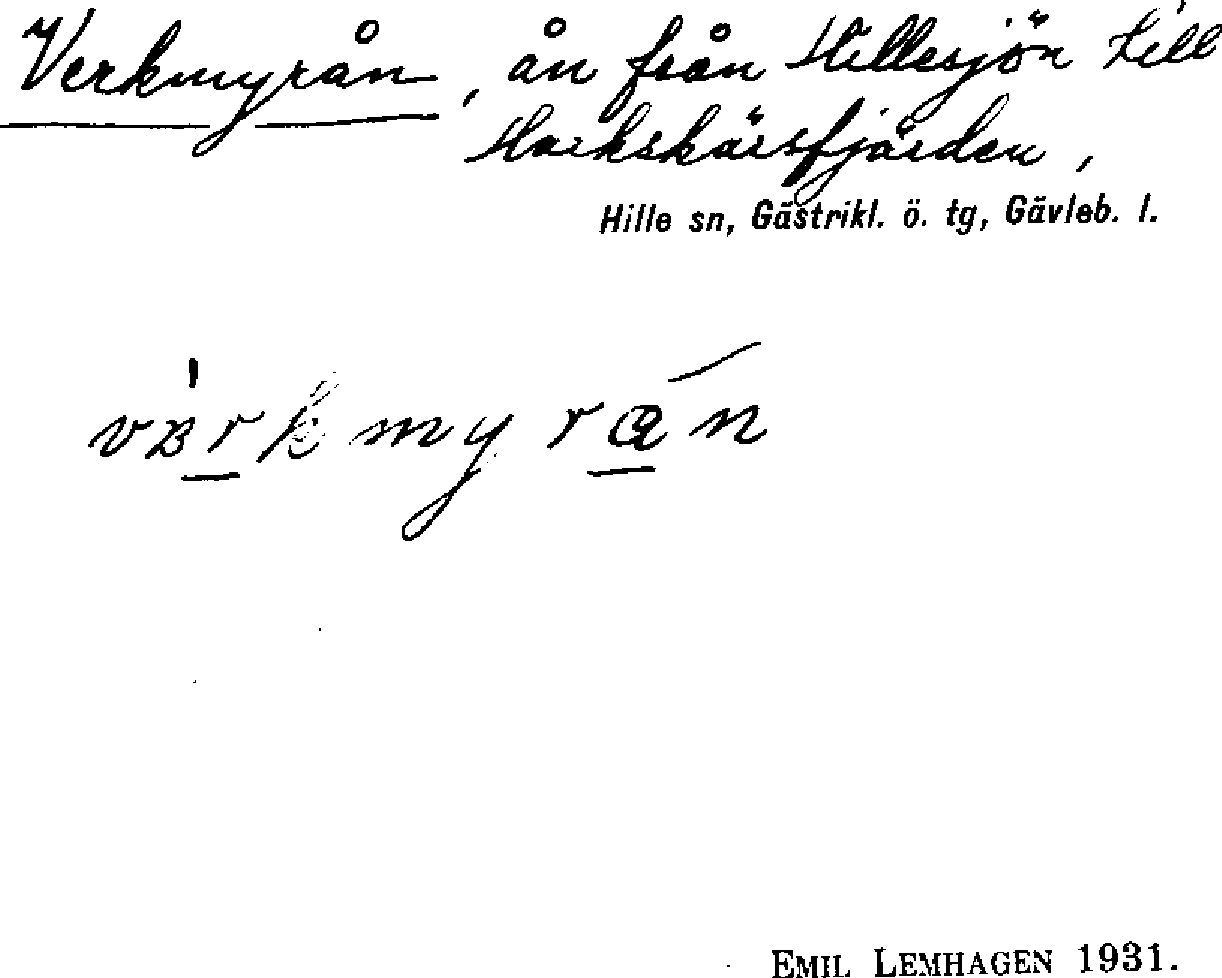 Verkmyrån, ån från Hillesjön till
Harkskärsfjärden,
Hille sn, Gästrikl. ö. tg, Gävleb. l.
EMIL LEMHAGEN 1931.